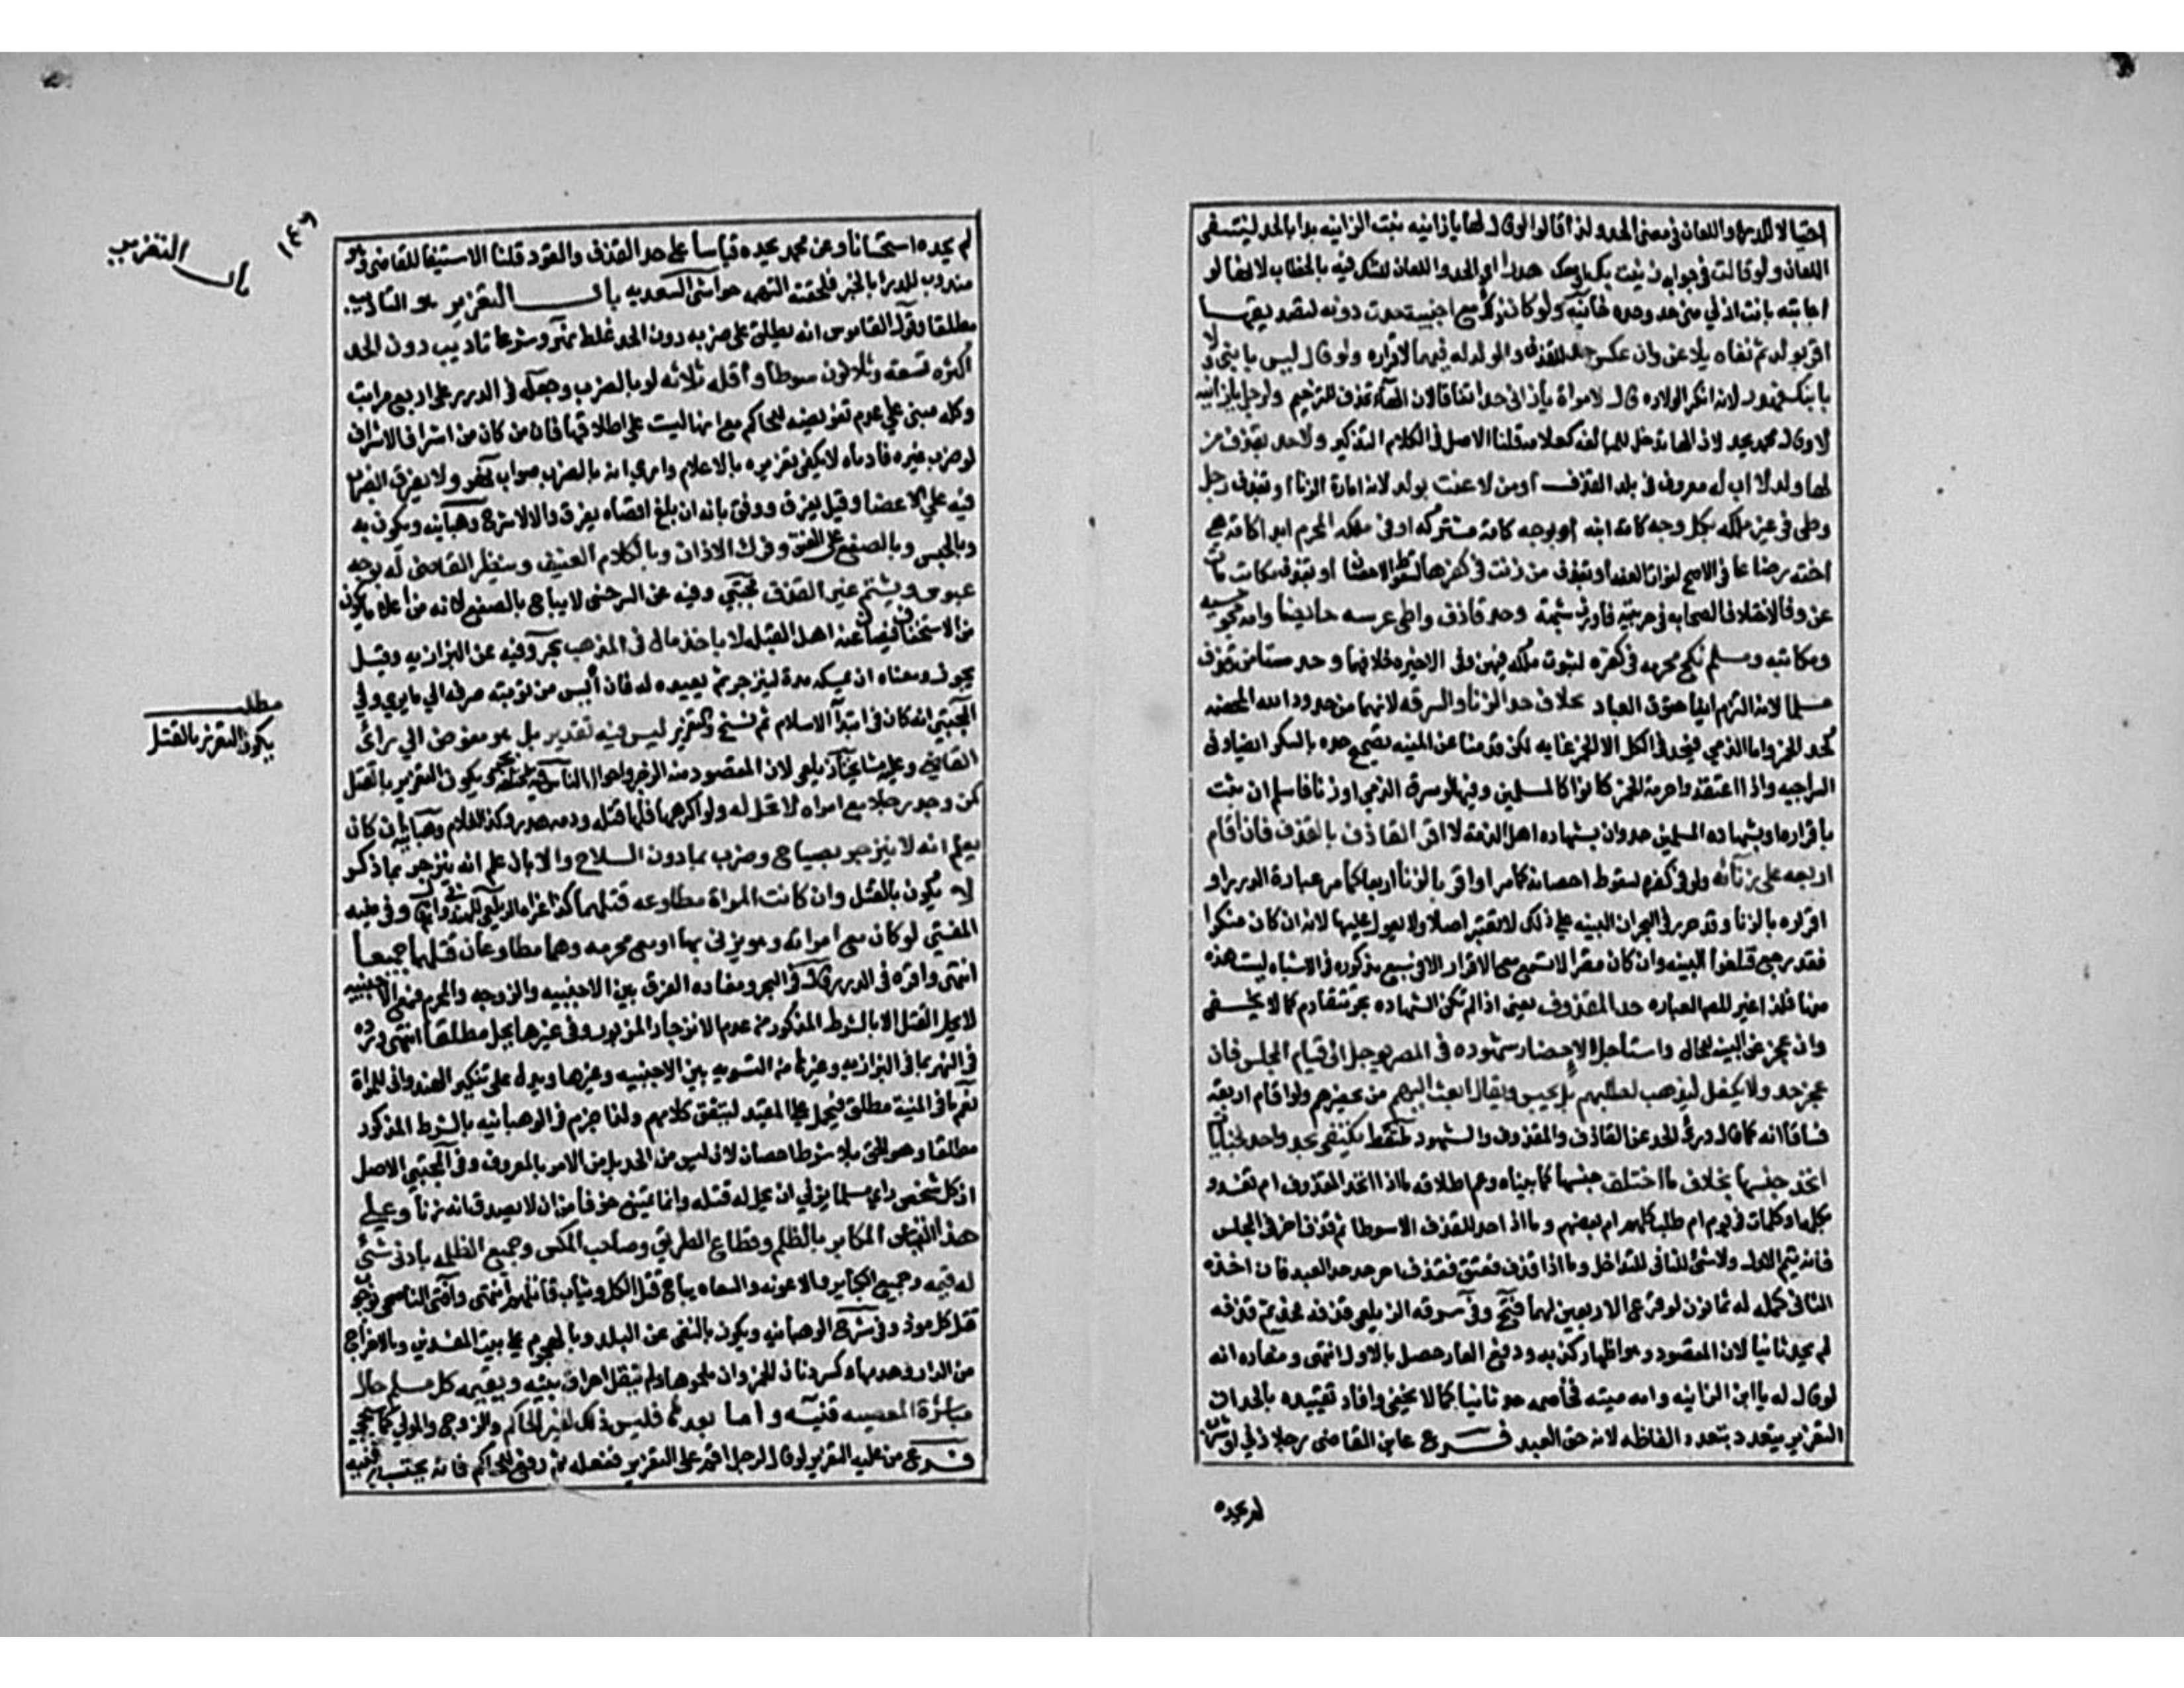 احتيالا للدرء واللعان في معنى الحد ولذا قالوا لو قال لها يا زانيه بنت الزانيه بدا بالحد لينتفى
اللعان ولو قالت في جوابه زنيت بك او معك هدرا اي الحد واللعان للشك قيد بالخطاب لانها لو
اجابته بانت ازنى مني حد وحده خانيه ولو كان ذلك مع اجنبية حدت دونه لتصديقها
اقر بولد ثم نفاه يلاعن وان عكس حد للقذف والولد له فيهما لاقراره ولو قال ليس بابني ولا
بابنك فهدر لانه انكر الولاده قال لامراة يا زاني حد اتفاقا لان الهاء تحذف للترخيم ولرجل يا زانيه
لا وقال محمد يحد لان الها تدخل للمبالغه كعلامه قلنا الاصل في الكلام التذكير ولا حد بقذف من
لها ولد لا اب له معروف في بلد القذف او من لاعنت بولد لانه امارة الزنا او بقذف رجل
وطى في غير ملكه بكل وجه كامة ابنه او بوجه كامة مشتركه او في ملكه المحرم ابدا كامة هي
اخته رضاعا في الاصح لفوات العفه او بقذف من زنت في كفرها لسقوط الاحصان او بقذف مكاتب مات
عن وفا لاختلاف الصحابه في حريته فاورث شبهة وحد قاذف واطى عرسه حائضا وامة مجوسيه
ومكاتبه ومسلم نكح محرمه في كفره لثبوت ملكه فيهن وفي الاخيره خلافهما وحد مستامن قذف
مسلما لانه التزم ايفا حقوق العباد بخلاف حد الزنا والسرقه لانهما من حدود الله المحضه
كحد الخمر واما الذمي فيحد في الكل الا الخمر غايه لكن قدمنا عن المنيه تصحيح حده بالسكر ايضا وفي
السراجيه واذا اعتقدوا حرمة الخمر كانوا كالمسلمين وفيها لو سرق الذمي او زنا فاسلم ان ثبت
باقراره او بشهاده المسلمين حد وان بشهاده اهل الذمة لا اقر القاذف بالقذف فان اقام
اربعه على زناه ولو في كفره لسقوط احصانه كما مر او اقر بالزنا اربعا كما مر عبارة الدرر او
اقراره بالزنا وقد حرر في البحر ان البينه على ذلك لا تعتبر اصلا ولا يعول عليها لانه ان كان منكرا
فقد رجع فتلغوا البينه وان كان مقرا لا تسمع مع الاقرار الا في سبع مذكوره في الاشباه ليست هذه
منها فلذا غير المص العباره حد المقذوف يعني اذا لم تكن الشهاده بحد متقادم كما لا يخفى
وان عجز عن البينه للحال واستاجل لاحضار شهوده في المصر يوجل الى قيام المجلس فان
عجز حد ولا يكفل ليذهب لطلبهم بل يحبس ويقال ابعث اليهم من يحضرهم ولو اقام اربعة
فساقا انه كما قال درئ الحد عن القاذف والمقذوف والشهود ملتقط يكتفي بحد واحد لجنايات
اتحد جنسها بخلاف ما اختلف جنسها كما بيناه وعم اطلاقه ما اذا اتحد المقذوف ام تعدد
بكلمه او كلمات في يوم ام طلب كلهم ام بعضهم وما اذا حد للقذف الا سوطا ثم قذف اخر في المجلس
فانه يتم الاول ولا شئ للثاني للتداخل وما اذا قذف فعتق فقذف اخر حد حد العبد فان اخذه
الثاني كمله له ثمانون لوقوع الاربعين لهما فتح وفي سرقه الزيلعي قذفه فحد ثم قذفه
لم يحد ثانيا لان المقصود وهو اظهار كذبه ودفع العار حصل بالاول انتهى ومفاده انه
لو قال له يا ابن الزانيه وامه ميته فخاصمه حد ثانيا كما لا يخفى وافاد تقييده بالحد ان
التعزير يتعدد بتعدد الفاظه لانه حق العبد فــرع عاين القاضي رجلا زنى او شرب
لم يحده
١٤٦
باب التعزير
لم يحده استحسانا وعن محمد يحده قياسا على حد القذف والقود قلنا الاستيفا للقاضي وهو
مندوب للدرء بالخبر فلحقته التهمه حواشي السعديه باب التعزير هو التاديب
مطلقا وقول القاموس انه يطلق على ضربه دون الحد غلط نهر وشرعا تاديب دون الحد
اكثره تسعة وثلاثون سوطا واقله ثلاثه لو بالضرب وجعله في الدرر على اربع مراتب
وكله مبني على عدم تفويضه للحاكم مع انها ليست على اطلاقها فان من كان من اشراف الاشراف
لو ضرب غيره فادماه لا يكفي تعزيره بالاعلام وارى انه بالضرب صواب نهر ولا يفرق الضرب
فيه على الاعضا وقيل يفرق ووفق بانه ان بلغ اقصاه يفرق والا لا شرح وهبانيه ويكون به
وبالحبس وبالصفع على العنق وفرك الاذان وبالكلام العنيف وبنظر القاضي له بوجه
عبوس ويشتم غير القذف مجتبى وفيه عن السرخسي لا يباح بالصفع لانه من اعلا ما يكون
من الاستخفاف فيصان عنه اهل القبله لا باخذ مال في المذهب بحر وفيه عن البزازيه وقيل
يجوز ومعناه ان يمسكه مدة لينزجر ثم يعيده له فان أيس من توبته صرفه الى ما يرى وفي
المجتبى انه كان في ابتدا الاسلام ثم نسخ والتعزير ليس فيه تقدير بل هو مفوض الى رأى
القاضي وعليه مشايخنا زيلعي لان المقصود منه الزجر واحوال الناس فيه مختلفة بحر ويكون التعزير بالقتل
كمن وجد رجلا مع امراه لا تحل له ولو اكرهها فلها قتله ودمه هدر وكذا الغلام وهبانيه ان كان
يعلم انه لا ينزجر بصياح وضرب بما دون السلاح والا بان علم انه ينزجر بما ذكر
لا يكون بالقتل وان كانت المراة مطاوعه قتلهما كذا عزاه الزيلعي للهندواني وفي منيه
المفتي لو كان مع امراته وهو يزني بها او مع محرمه وهما مطاوعان قتلهما جميعا
انتهى واقره في الدرر وقال في البحر ومفاده الفرق بين الاجنبيه والزوجه والمحرم فمع الاجنبيه
لا يحل القتل الا بالشرط المذكور من عدم الانزجار المزبور وفي غيرها يحل مطلقا انتهى ورده
في النهر بما في البزازيه وغيرها من التسويه بين الاجنبيه وغيرها ويدل على تنكير الهندواني للمراة
نعم ما في المنية مطلق فيحمل على المقيد ليتفق كلامهم ولذا جزم في الوهبانيه بالشرط المذكور
مطلقا وهو الحق بلا شرط احصان لانه ليس من الحد بل من الامر بالمعروف وفي المجتبى الاصل
ان كل شخص راى مسلما يزني ان يحل له قتله وانما يمتنع خوفا من ان لا يصدق انه زنا وعلى
هذا القياس المكابر بالظلم وقطاع الطريق وصاحب المكس وجميع الظلمه بادنى شئ
له قيمه وجميع الكبائر والاعونه والسعاه يباح قتل الكل ويثاب قاتلهم انتهى وافتى الناصحي بوجوب
قتل كل موذ وفي شرح الوهبانيه ويكون بالنفي عن البلد وبالهجوم على بيت المفسدين وبالاخراج
من الدار وهدمها وكسر دنان الخمر وان ملحوها ولم ينقل احراق بيته ويقيمه كل مسلم حال
مباشرة المعصيه قنيه واما بعده فليس ذلك لغير الحاكم والزوج والمولى كما سيجي
فــرع من عليه التعزير لو قال لرجل اقم على التعزير ففعله ثم رفع للحاكم فانه يحتسب به قنيه
مطلب
يكون التعزير بالقتل